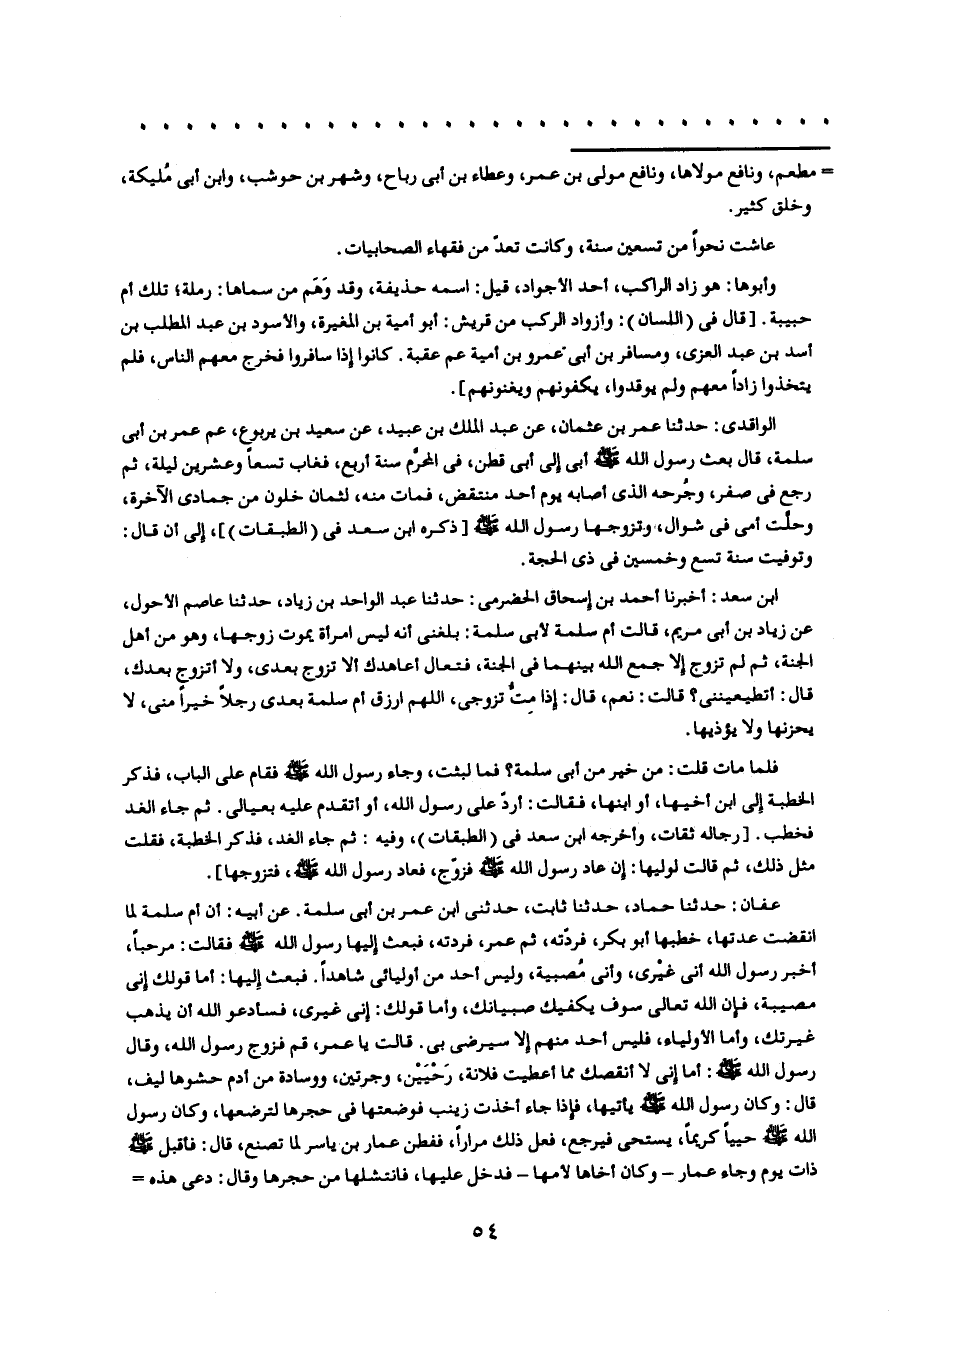 = مطعم، ونافع مولاها، ونافع مولى بن عمر، وعطاء بن أبى رباح، وشهر بن حوشب، وابن أبى مُليكة،
وخلق كثير.
عاشت نحواً من تسعين سنة، وكانت تعدّ من فقهاء الصحابيات.
وأبوها: هو زاد الراكب، أحد الأجواد، قيل: اسمه حذيفة، وقد وَهَم من سماها: رملة؛ تلك أم
حبيبة. [قال فى (اللسان): وأزواد الركب من قريش: أبو أمية بن المغيرة، والأسود بن عبد المطلب بن
أسد بن عبد العزى، ومسافر بن أبى عمرو بن أمية عم عقبة. كانوا إذا سافروا فخرج معهم الناس، فلم
يتخذوا زاداً معهم ولم يوقدوا، يكفونهم ويغنونهم].
الواقدى: حدثنا عمر بن عثمان، عن عبد الملك بن عبيد، عن سعيد بن يربوع، عم عمر بن أبى
سلمة، قال بعث رسول الله ﷺ أبى إلى أبى قطن، فى المحرَّم سنة أربع، فغاب تسعاً وعشرين ليلة، ثم
رجع فى صفر، وجُرحه الذى أصابه يوم أحد منتقض، فمات منه، لثمان خلون من جمادى الآخرة،
وحلَّت أمى فى شوال، وتزوجها رسول الله ﷺ [ذكره ابن سعد فى (الطبقات)]، إلى أن قال:
وتوفيت سنة تسع وخمسين فى ذى الحجة.
ابن سعد: أخبرنا أحمد بن إسحاق الحضرمى: حدثنا عبد الواحد بن زياد، حدثنا عاصم الأحول،
عن زياد بن أبى مريم، قالت أم سلمة لأبى سلمة: بلغنى أنه ليس امرأة يموت زوجها، وهو من أهل
الجنة، ثم لم تزوج إلا جمع الله بينهما فى الجنة، فتعال أعاهدك ألا تزوج بعدى، ولا أتزوج بعدك،
قال: أتطيعيننى؟ قالت: نعم، قال: إذا مِتُّ تزوجى، اللهم ارزق أم سلمة بعدى رجلاً خيراً منى، لا
يحزنها ولا يؤذيها.
فلما مات قلت: من خير من أبى سلمة؟ فما لبثت، وجاء رسول الله ﷺ فقام على الباب، فذكر
الخطبة إلى ابن أخيها، أو ابنها، فقالت: أردّ على رسول الله، أو أتقدم عليه بعيالى. ثم جاء الغد
فخطب. [رجاله ثقات، وأخرجه ابن سعد فى (الطبقات)، وفيه : ثم جاء الغد، فذكر الخطبة، فقلت
مثل ذلك، ثم قالت لوليها: إن عاد رسول الله ﷺ فزوّج، فعاد رسول الله ﷺ، فتزوجها].
عفان: حدثنا حماد، حدثنا ثابت، حدثنى ابن عمر بن أبى سلمة. عن أبيه: أن أم سلمة لما
انقضت عدتها، خطبها أبو بكر، فردّته، ثم عمر، فردته، فبعث إليها رسول الله ﷺ فقالت: مرحباً،
أخبر رسول الله أنى غيْرى، وأنى مُصبية، وليس أحد من أوليائى شاهداً. فبعث إليها: أما قولك إنى
مصيبة، فإن الله تعالى سوف يكفيك صبيانك، وأما قولك: إنى غيرى، فسأدعو الله أن يذهب
غيرتك، وأما الأولياء، فليس أحد منهم إلا سيرضى بى. قالت يا عمر، قم فزوج رسول الله، وقال
رسول الله ﷺ: أما إنى لا أنقصك مما أعطيت فلانة، رَحْيَيْن، وجرتين، ووسادة من أدم حشوها ليف،
قال: وكان رسول الله ﷺ يأتيها، فإذا جاء أخذت زينب فوضعتها فى حجرها لترضعها، وكان رسول
الله ﷺ حيياً كريماً، يستحى فيرجع، فعل ذلك مراراً، ففطن عمار بن ياسر لما تصنع، قال: فأقبل ﷺ
ذات يوم وجاء عمار – وكان أخاها لأمها – فدخل عليها، فانتشلها من حجرها وقال: دعى هذه =
٥٤